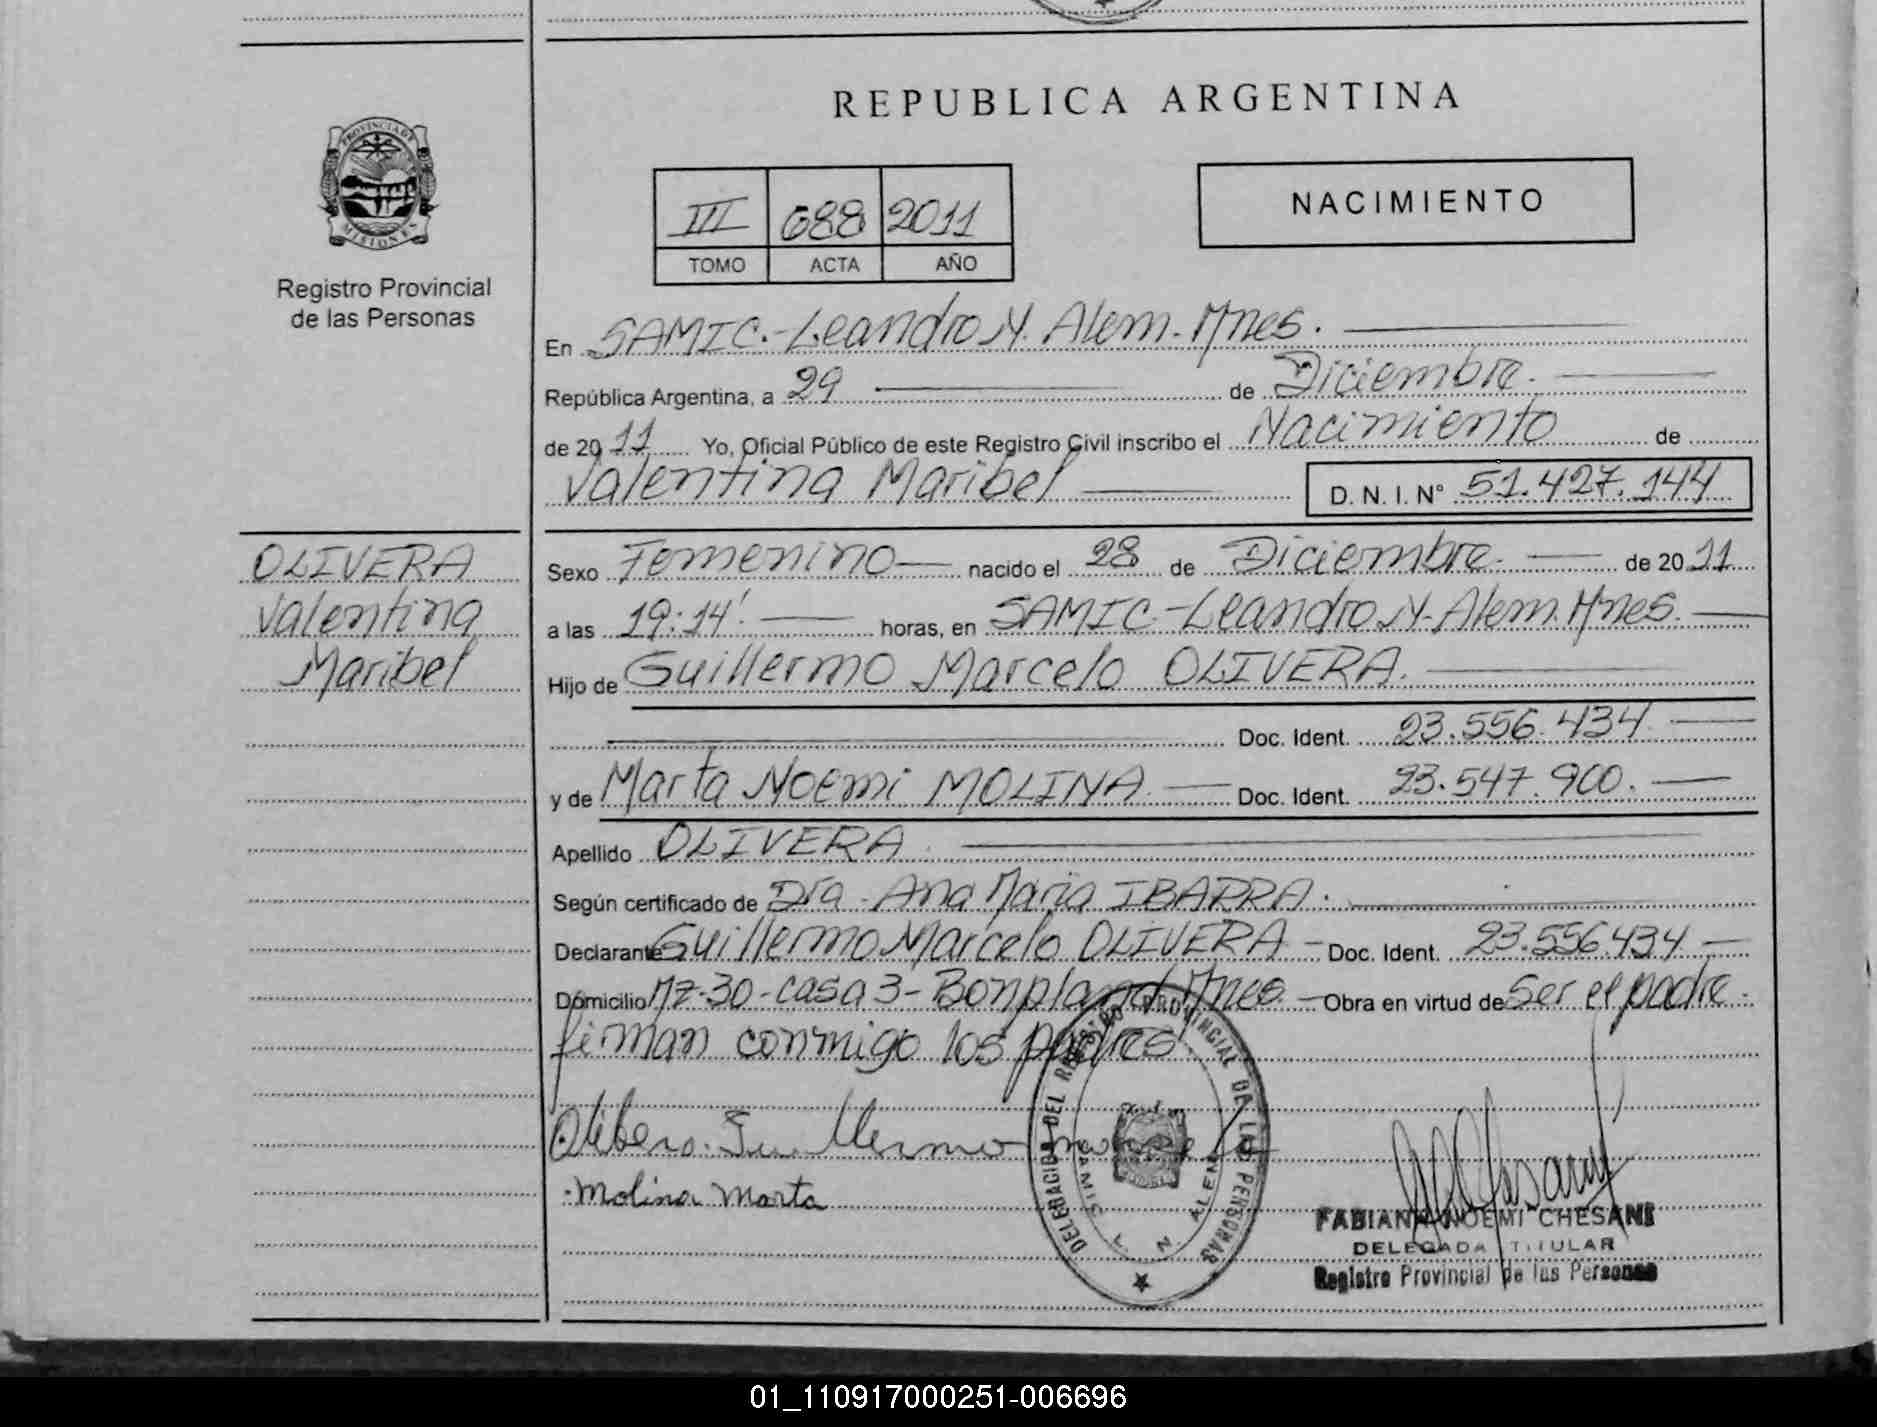 REPUBLICA ARGENTINA
PROVINCIA DE
MISIONES
Registro Provincial
de las Personas
III 688 2011
TOMO ACTA AÑO
NACIMIENTO
En SAMIC.-Leandro N. Alem. Mnes.
República Argentina, a 29 de Diciembre.
de 2011 Yo, Oficial Público de este Registro Civil inscribo el Nacimiento de
Valentina Maribel D. N. I. N° 51.427.144
OLIVERA
Valentina
Maribel
Sexo Femenino nacido el 28 de Diciembre. de 2011
a las 19:14'. horas, en SAMIC-Leandro N. Alem. Mnes.
Hijo de Guillermo Marcelo OLIVERA.
Doc. Ident. 23.556.434
y de Marta Noemi MOLINA. Doc. Ident. 23.547.900.
Apellido OLIVERA.
Según certificado de Dra. Ana Maria IBARRA.
Declarante Guillermo Marcelo OLIVERA - Doc. Ident. 23.556.434
Domicilio Mz-30-casa 3-Bonpland Mnes. Obra en virtud de Ser el padre.
firman conmigo los padres
Olibera Guillermo
Molina Marta
DELEGACION DEL REGISTRO PROVINCIAL DE LAS PERSONAS
SAMIC L. N. ALEM
FABIANA NOEMI CHESANI
DELEGADA TITULAR
Registro Provincial de las Personas
01_110917000251-006696